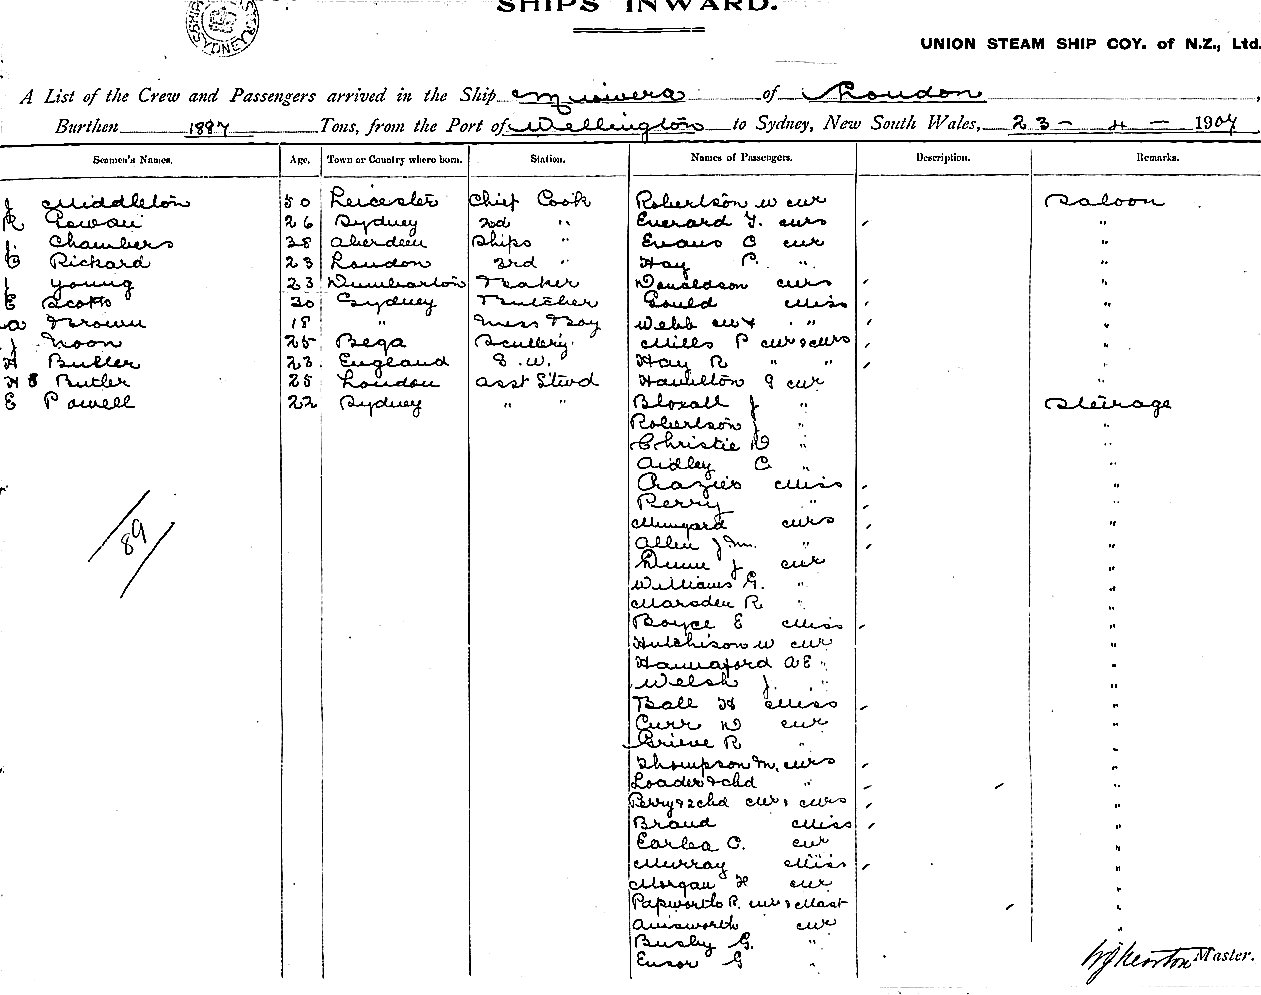 SHIPS INWARD.
SYDNEY
UNION STEAM SHIP COY. of N.Z., Ltd.
A List of the Crew and Passengers arrived in the Ship of London,
Burthen 1887 Tons, from the Port of Wellington to Sydney, New South Wales, 23 - 4 - 1907
Seamen's Names. Age. Town or Country where born. Station. Names of Passengers. Description. Remarks.
J Middleton 50 Leicester Chief Cook Robertson W Mr Saloon
26 Sydney 2nd " Everard Y. Mrs "
Chambers 38 Aberdeen Ships " Evans C Mr "
Rickard 23 London 3rd " Hay P. " "
Young 23 Dumbarton Baker Donaldson Mrs "
E Scott 30 Sydney Butcher Gould Miss "
A Brown 18 " Mess Boy Webb " "
J Noon 25 Bega Scullery Mills P Mr & Mrs "
H Butler 23 England G.W. Hay R " " "
H S Butler 25 London Asst Stewd Hamilton G Mr "
E Powell 22 Sydney " " Bloxall J " Steerage
Robertson J " "
Christie D " "
Aidley C " "
Miss "
Perry " "
Mrs "
Allen J M. " "
Dunn J. Mr "
Williams G. " "
Marsden R. " "
Boyce E Miss "
Hutchison W Mr "
Hannaford A E " "
Welsh J. " "
Ball H Miss "
Curr D Mr "
Grieve R " "
Thompson M. Mrs "
Loader & chd " "
Perry & 2 chd Mr & Mrs "
Brand Miss "
C. Mr "
Murray Miss "
Morgan H Mr "
Papworth R. Mr & Mast "
Ainsworth Mr "
Busby G. "
Ensor G "
/89/
Master.